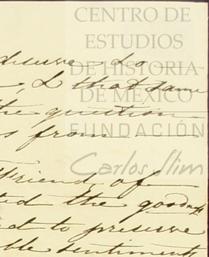 CENTRO DE
ESTUDIOS
DE HISTORIA
DE MÉXICO
FUNDACIÓN
Carlos Slim
deserve to
, I that same
the question
s from
friend of
ted the goodness
d to preserve
ble sentiments